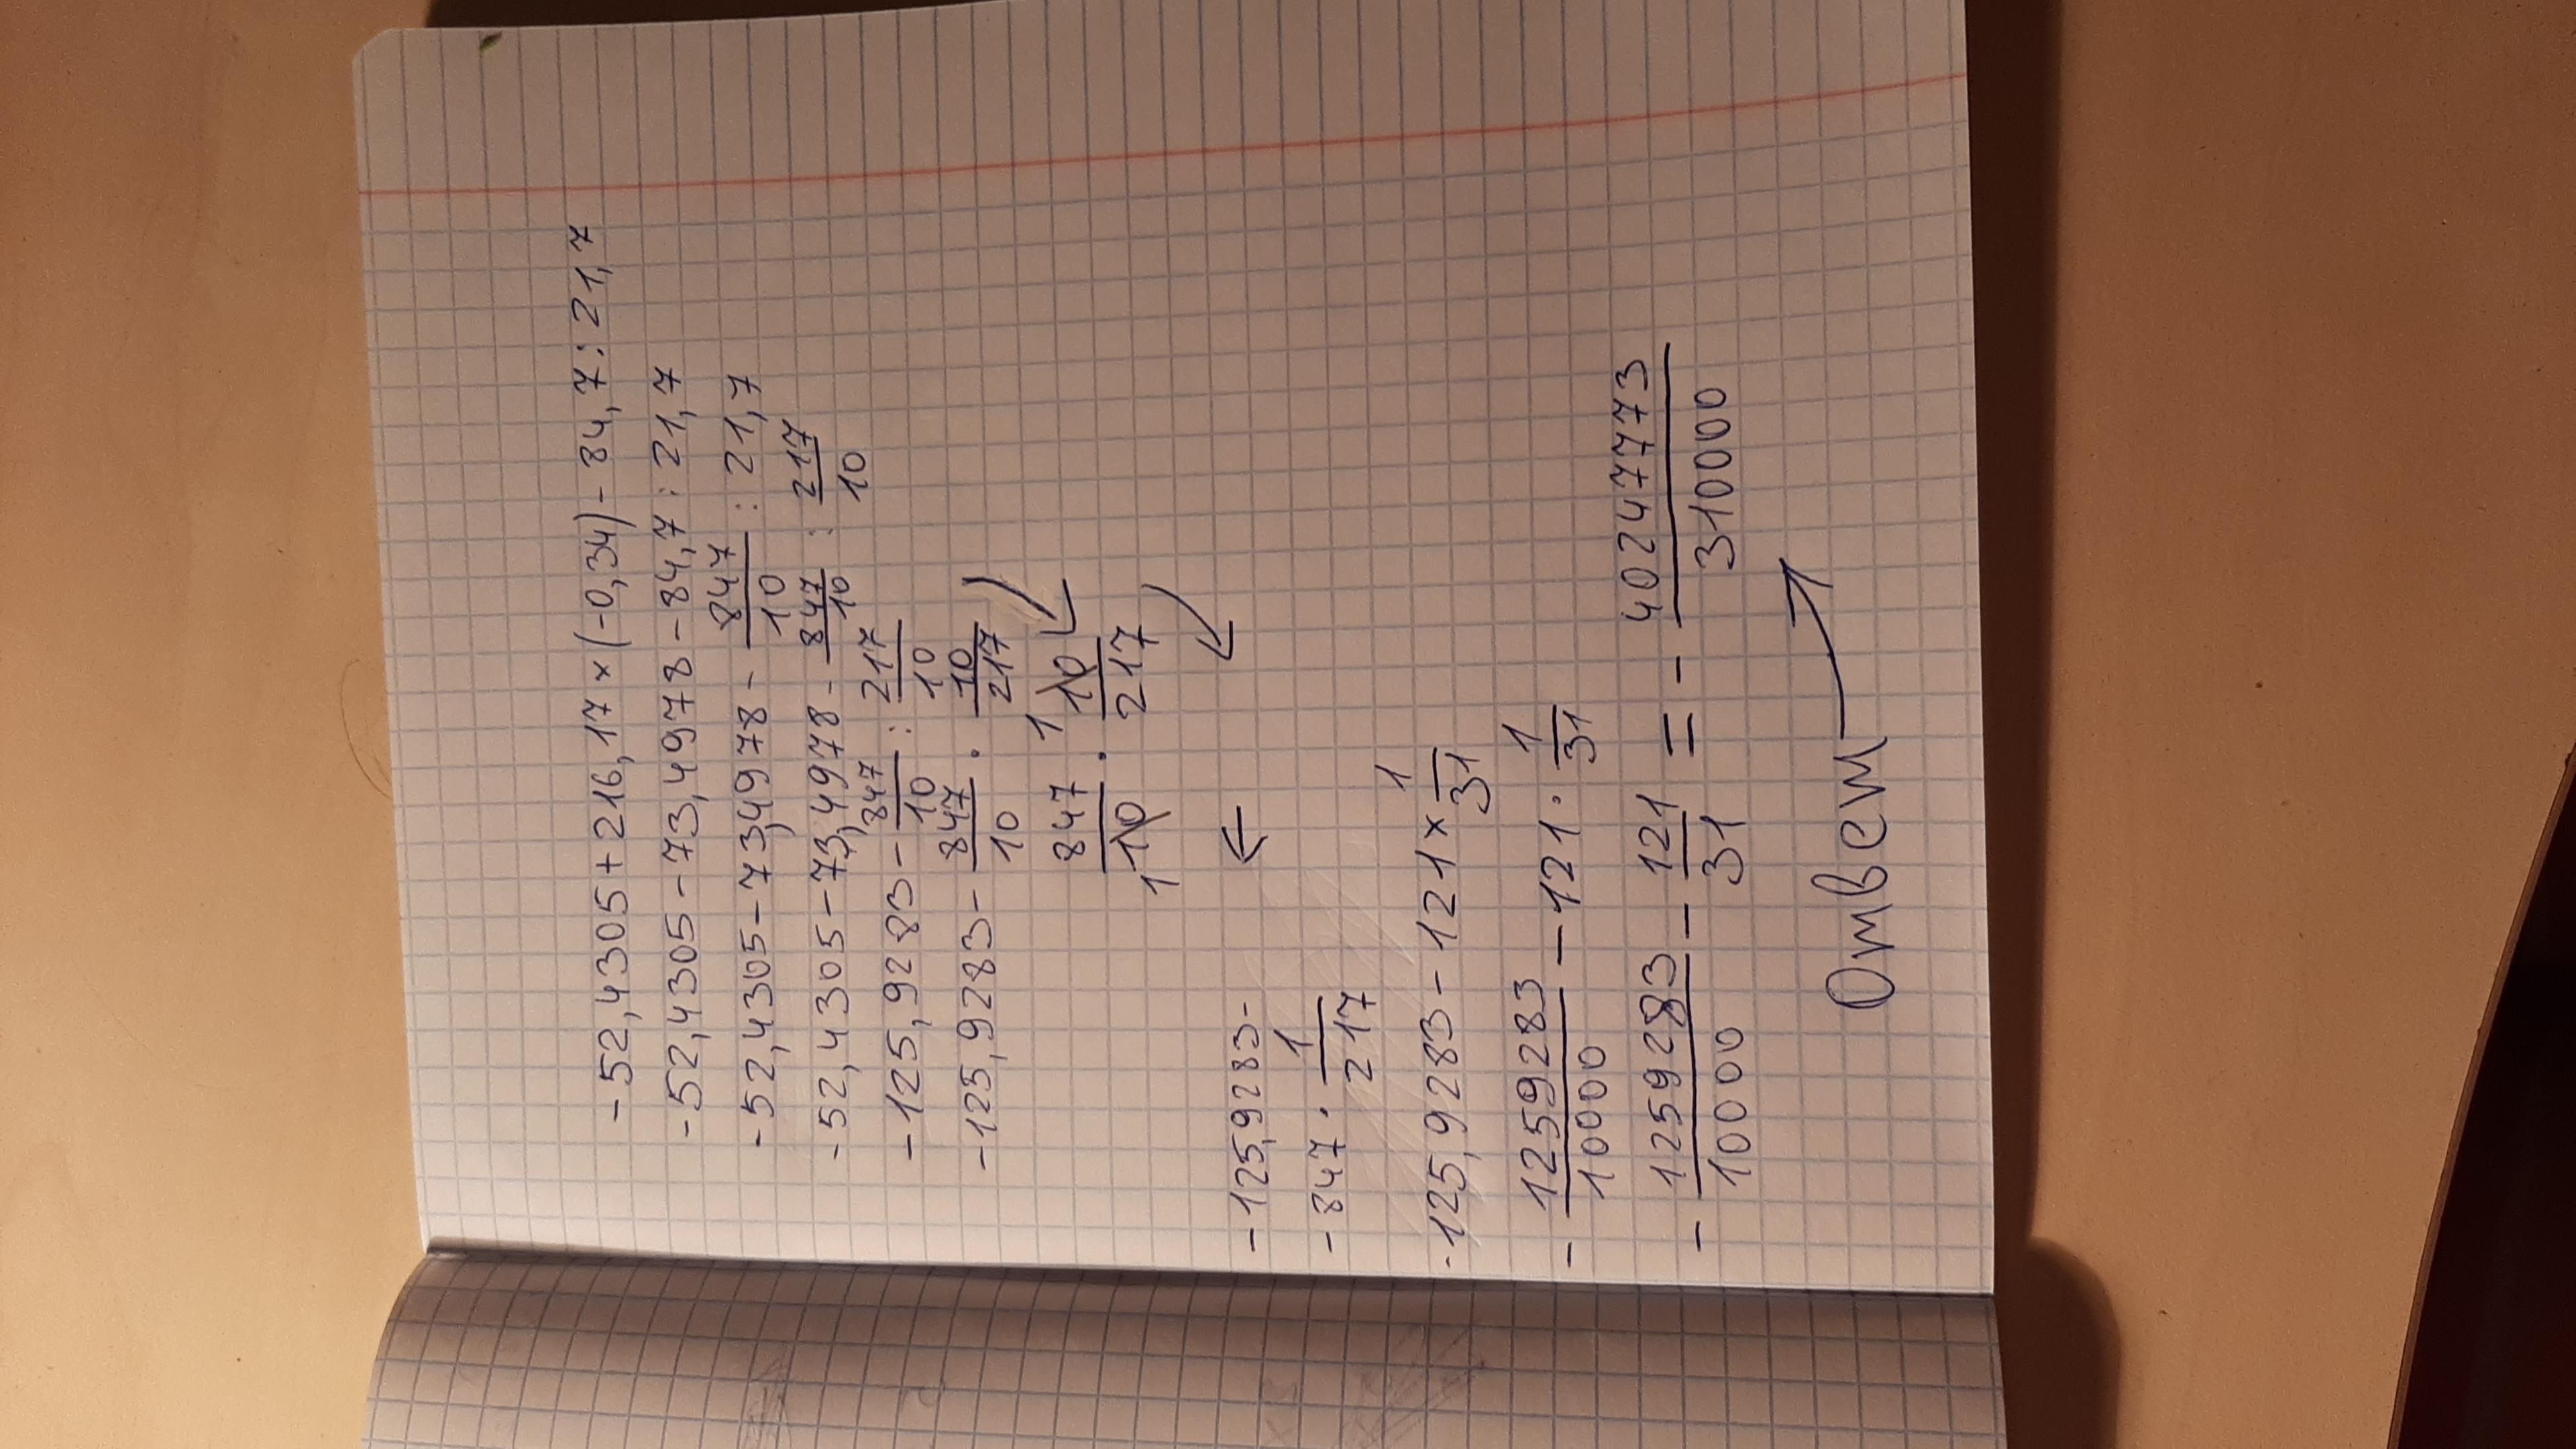 -52,4305+216,17×(-0,34)-84,7:21,7
-52,4305-73,4978-84,7:21,7
-52,4305-73,4978-847/10:21,7
-52,4305-73,4978-847/10:217/10
-125,9283-847/10:217/10
-125,9283-847/10·10/217
847/10·10/217
1 1
-125,9283-
-847·1/217
-125,9283-121×1/31
-1259283/10000-121·1/31
-1259283/10000-121/31=-40247773/310000
Ответ